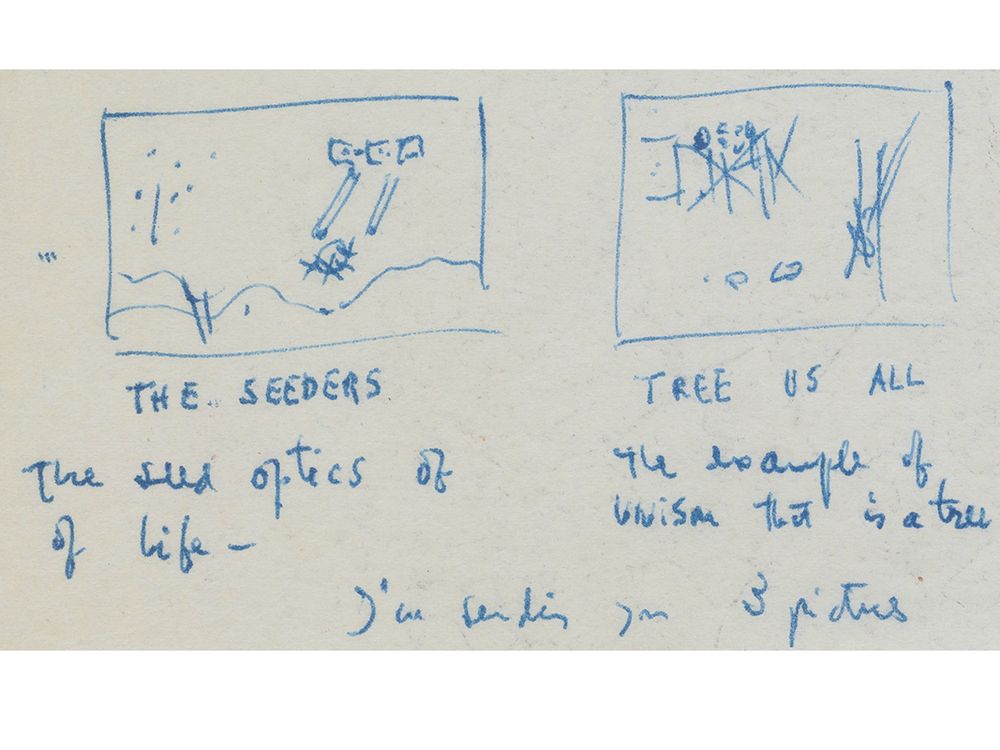 THE SEEDERS
The seed optics of
of life –
TREE US ALL
The example of
UNISM that is a tree
I'm sending you 3 pictures